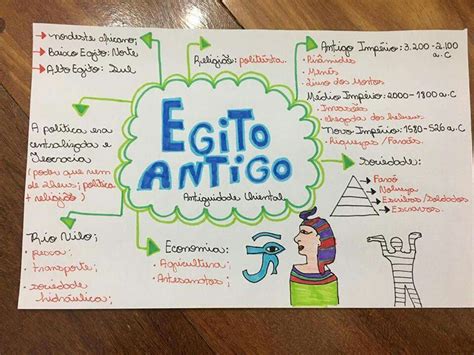 → nordeste africano;
→ Baixo Egito: Norte
→ Alto Egito: Sul
Religião: politeísta.
Antigo Império: 3.200-2.100
a.C
• Pirâmides
• Menés
• Livro dos Mortos
Médio Império: 2000-1800 a.C
• Invasões
• Chegada dos hebreus
Novo Império: 1580-526 a.C
• Riquezas / Faraós.
EGITO
ANTIGO
Antiguidade Oriental
A política era
centralizada e
Teocracia
(poder que vem
de Deus; política
+ religião)
Sociedade:
→ Faraó
→ Nobreza
→ Escribas/Soldados
→ Escravos.
Rio Nilo;
• pesca;
• transporte;
• sociedade
hidráulica;
Economia:
• Agricultura;
• Artesanatos;